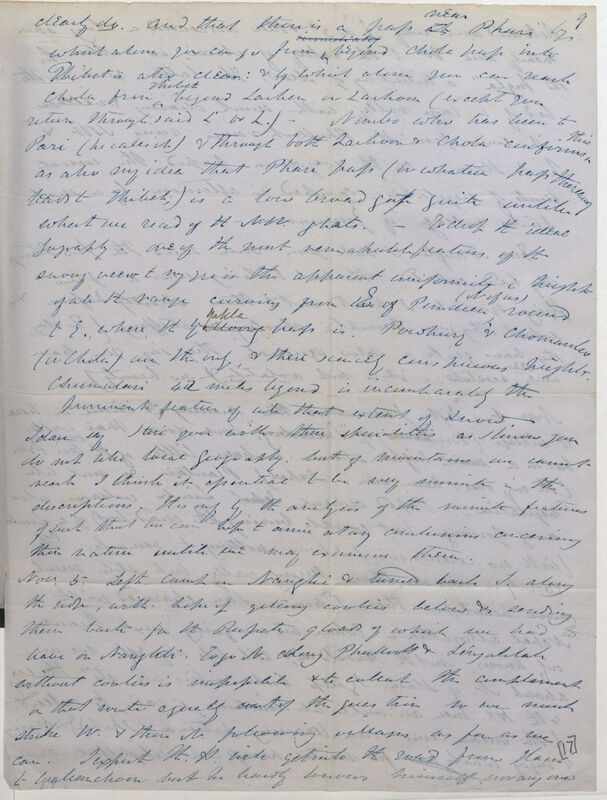 9
clearly do. and that there is a pass near Phari by
which alone you can go from beyond Chola pass into
Thibet is also clear: & by which alone you can reach
Chola from Thibet beyond Lachen or Lachoon (except you
return through said L or L.) — Nimbo who has been to
Pari (he calls it) & through both Lachoon & Chola confirms this
as also my idea that Phari pass (or whatever pass thereaway
leads to Thibet,) is a low broad gap quite unlike
what we read of the N.W. ghats. — the ideal
one of the most remarkable features of the
snowy view to my eye is the apparent uniformity in height
of all the range curving from E of (Nipal) round
to E. where the Yakla pass is. Powhunry & Chomanko
(or Chola) are the only, & these scarcely conspicuous heights.
Chumalari 40 miles beyond is incomparably the
prominent feature of all that extent of
I dare say I tire you with these specialities as I know you
do not like local geography: but if mountains we cannot
reach I think it essential to be very minute in the
descriptions. It is only by the analysis of the minute features
of such that we can hope to arrive at any conclusions concerning
their nature until we may examine them.
Novr 5. Left camp on Nanghi & turned back S. along
the ridge with hope of getting coolies below & sending
them back for the of load of which we had to
leave on Nanghi. To go N. along &
without coolies is impossible & to collect the complement
on that route equally out of the question so we must
strike W. & then N. following villages as far as we
can. I expect the H will get into the road from
to but he hardly knows himself nor any one
[17]